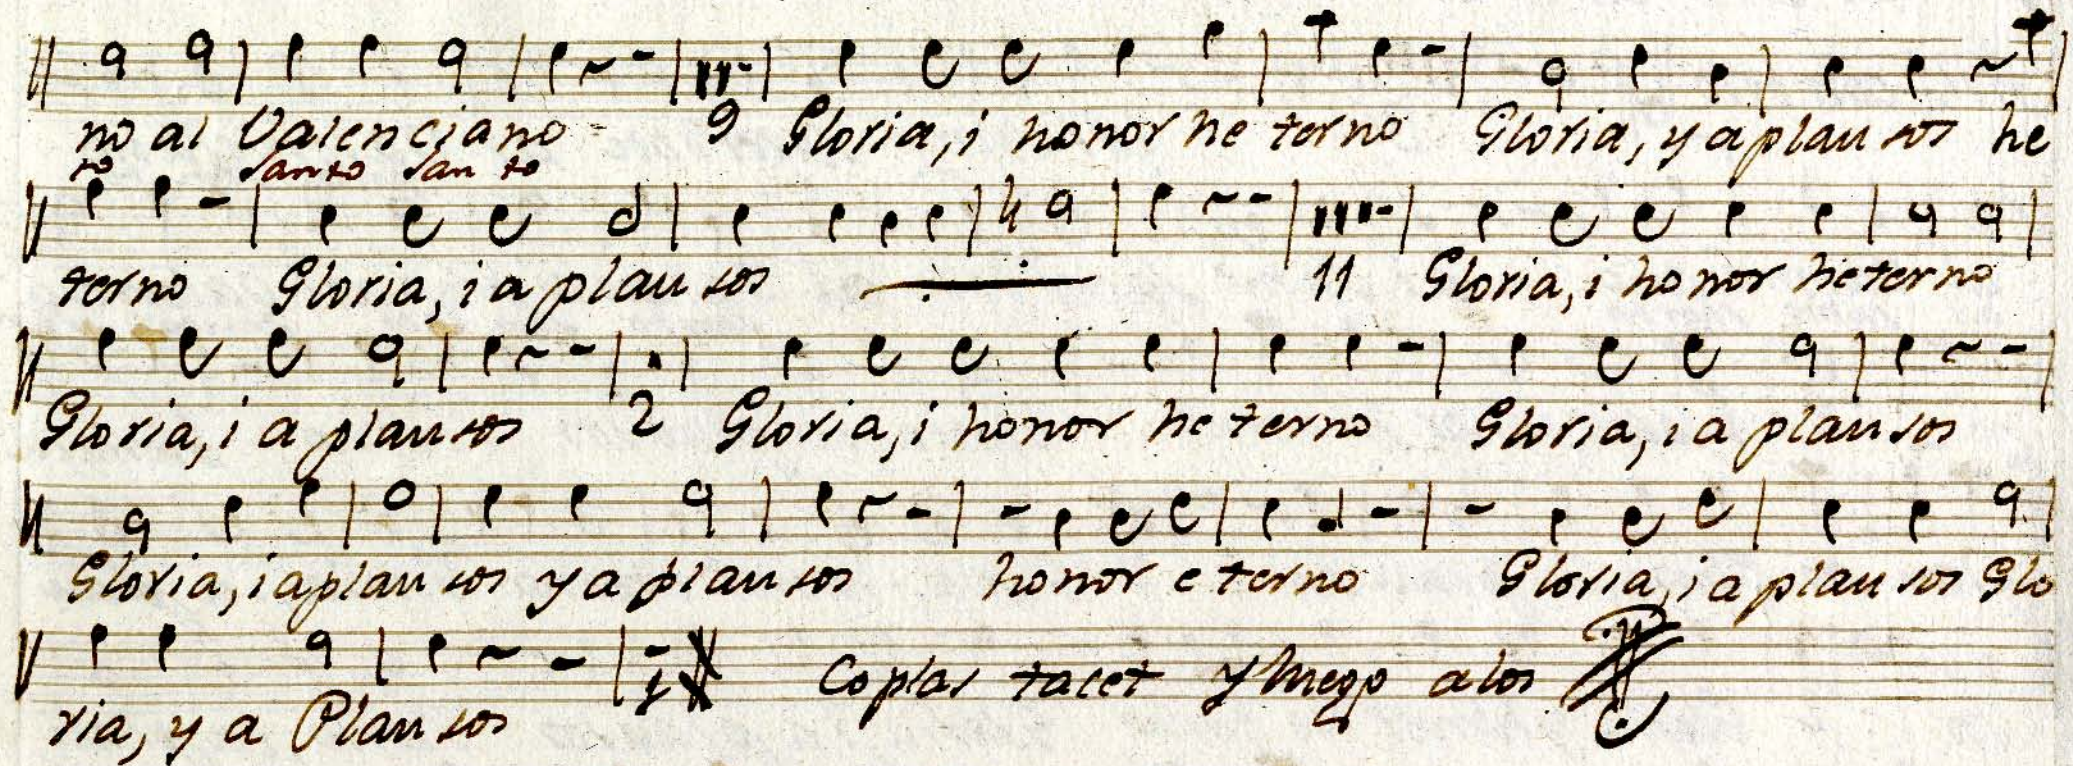 no al Valenciano 9 Gloria, i honor he terno Gloria, y aplau sos he
to Santo San to
terno Gloria, i a plau sos 11 Gloria, i honor heterno
Gloria, i a plausos 2 Gloria, i honor he terno Gloria, i a plausos
Gloria, i aplau sos y a plau sos honor e terno Gloria, i a plau sos Glo
ria, y a Plau sos Coplas tacet y luego a los